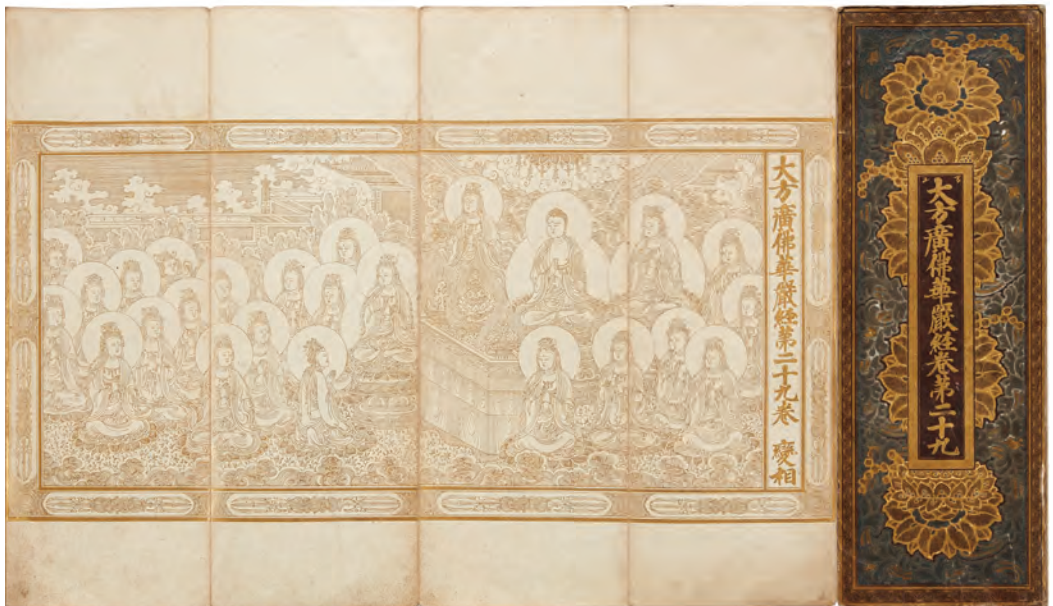 大方廣佛華嚴經卷第二十九
大方廣佛華嚴經第二十九卷 變相